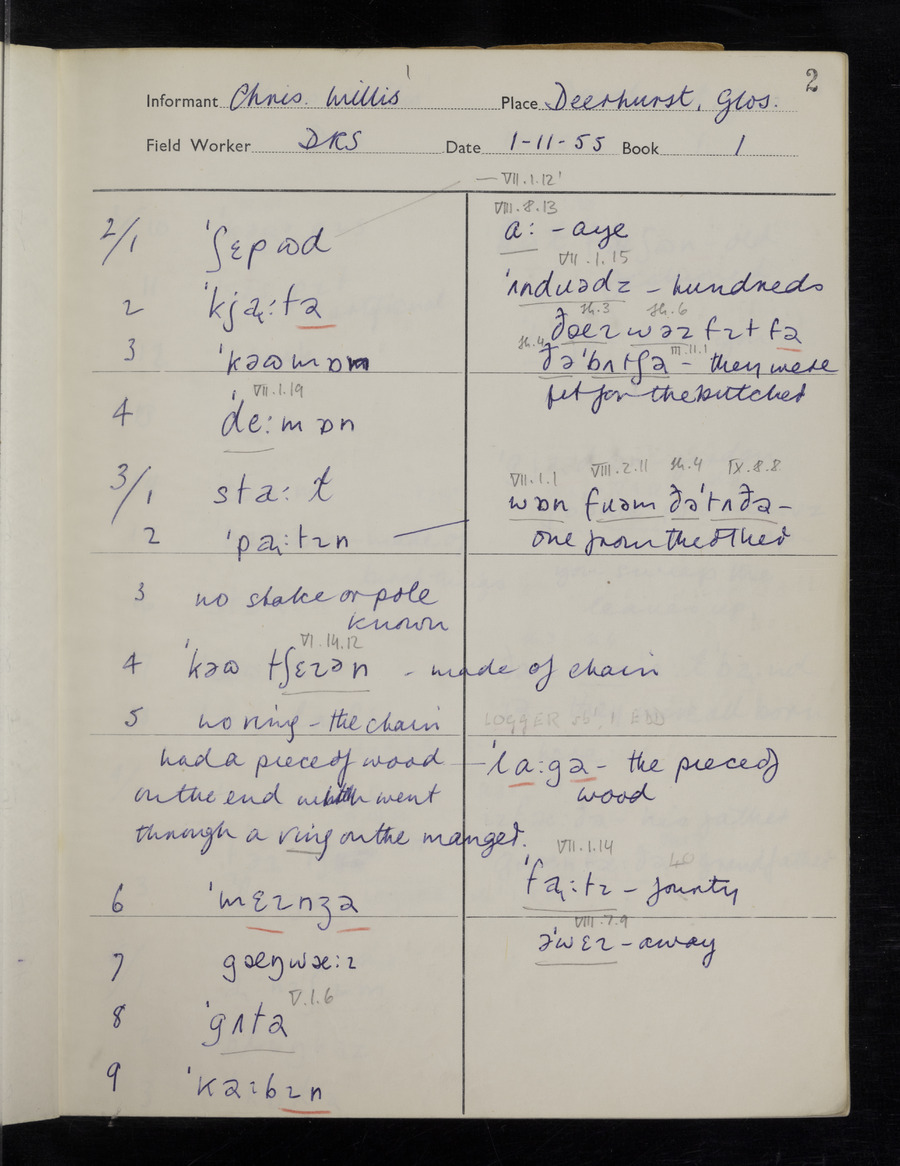 2
Informant Chris. Willis Place Deerhurst, Glos.
Field Worker DRS Date 1-11-55 Book 1
— VII.1.12'
2/1 ˈʃɛpəd
2 ˈkjaː
3 ˈkəʊmɒn
VII.1.19
4 ˈdeːmɒn
3/1 staːɫ
2 ˈpaːtɪn
3 no stake or pole
known
VI.14.12
4 ˈkəʊ tʃɛɪən - made of chain
5 no ring - the chain
had a piece of wood
on the end which went
through a ring on the manger.
6 ˈmɛɪnʒə
7 gæŋwæːɪ
V.1.6
8 ˈgʌtə
9
VIII.8.13
aː - aye
VII.1.15
ˈʌndɹədz - hundreds
sh.3 sh.6
ðæɪ wəz fɪt fə
sh.4 III.11.1
ðəˈbʌtʃə - they were
fit for the butcher
VII.1.1 VIII.2.11 sh.4 IX.8.8
wɒn fɹəm ðəˈtʌðə -
one from the other
LOGGER sb 11 EDD
ˈlaːgə - the piece of
wood
VII.1.14 40
ˈfaːtɪ - forty
VIII.7.9
əˈwɛɪ - away